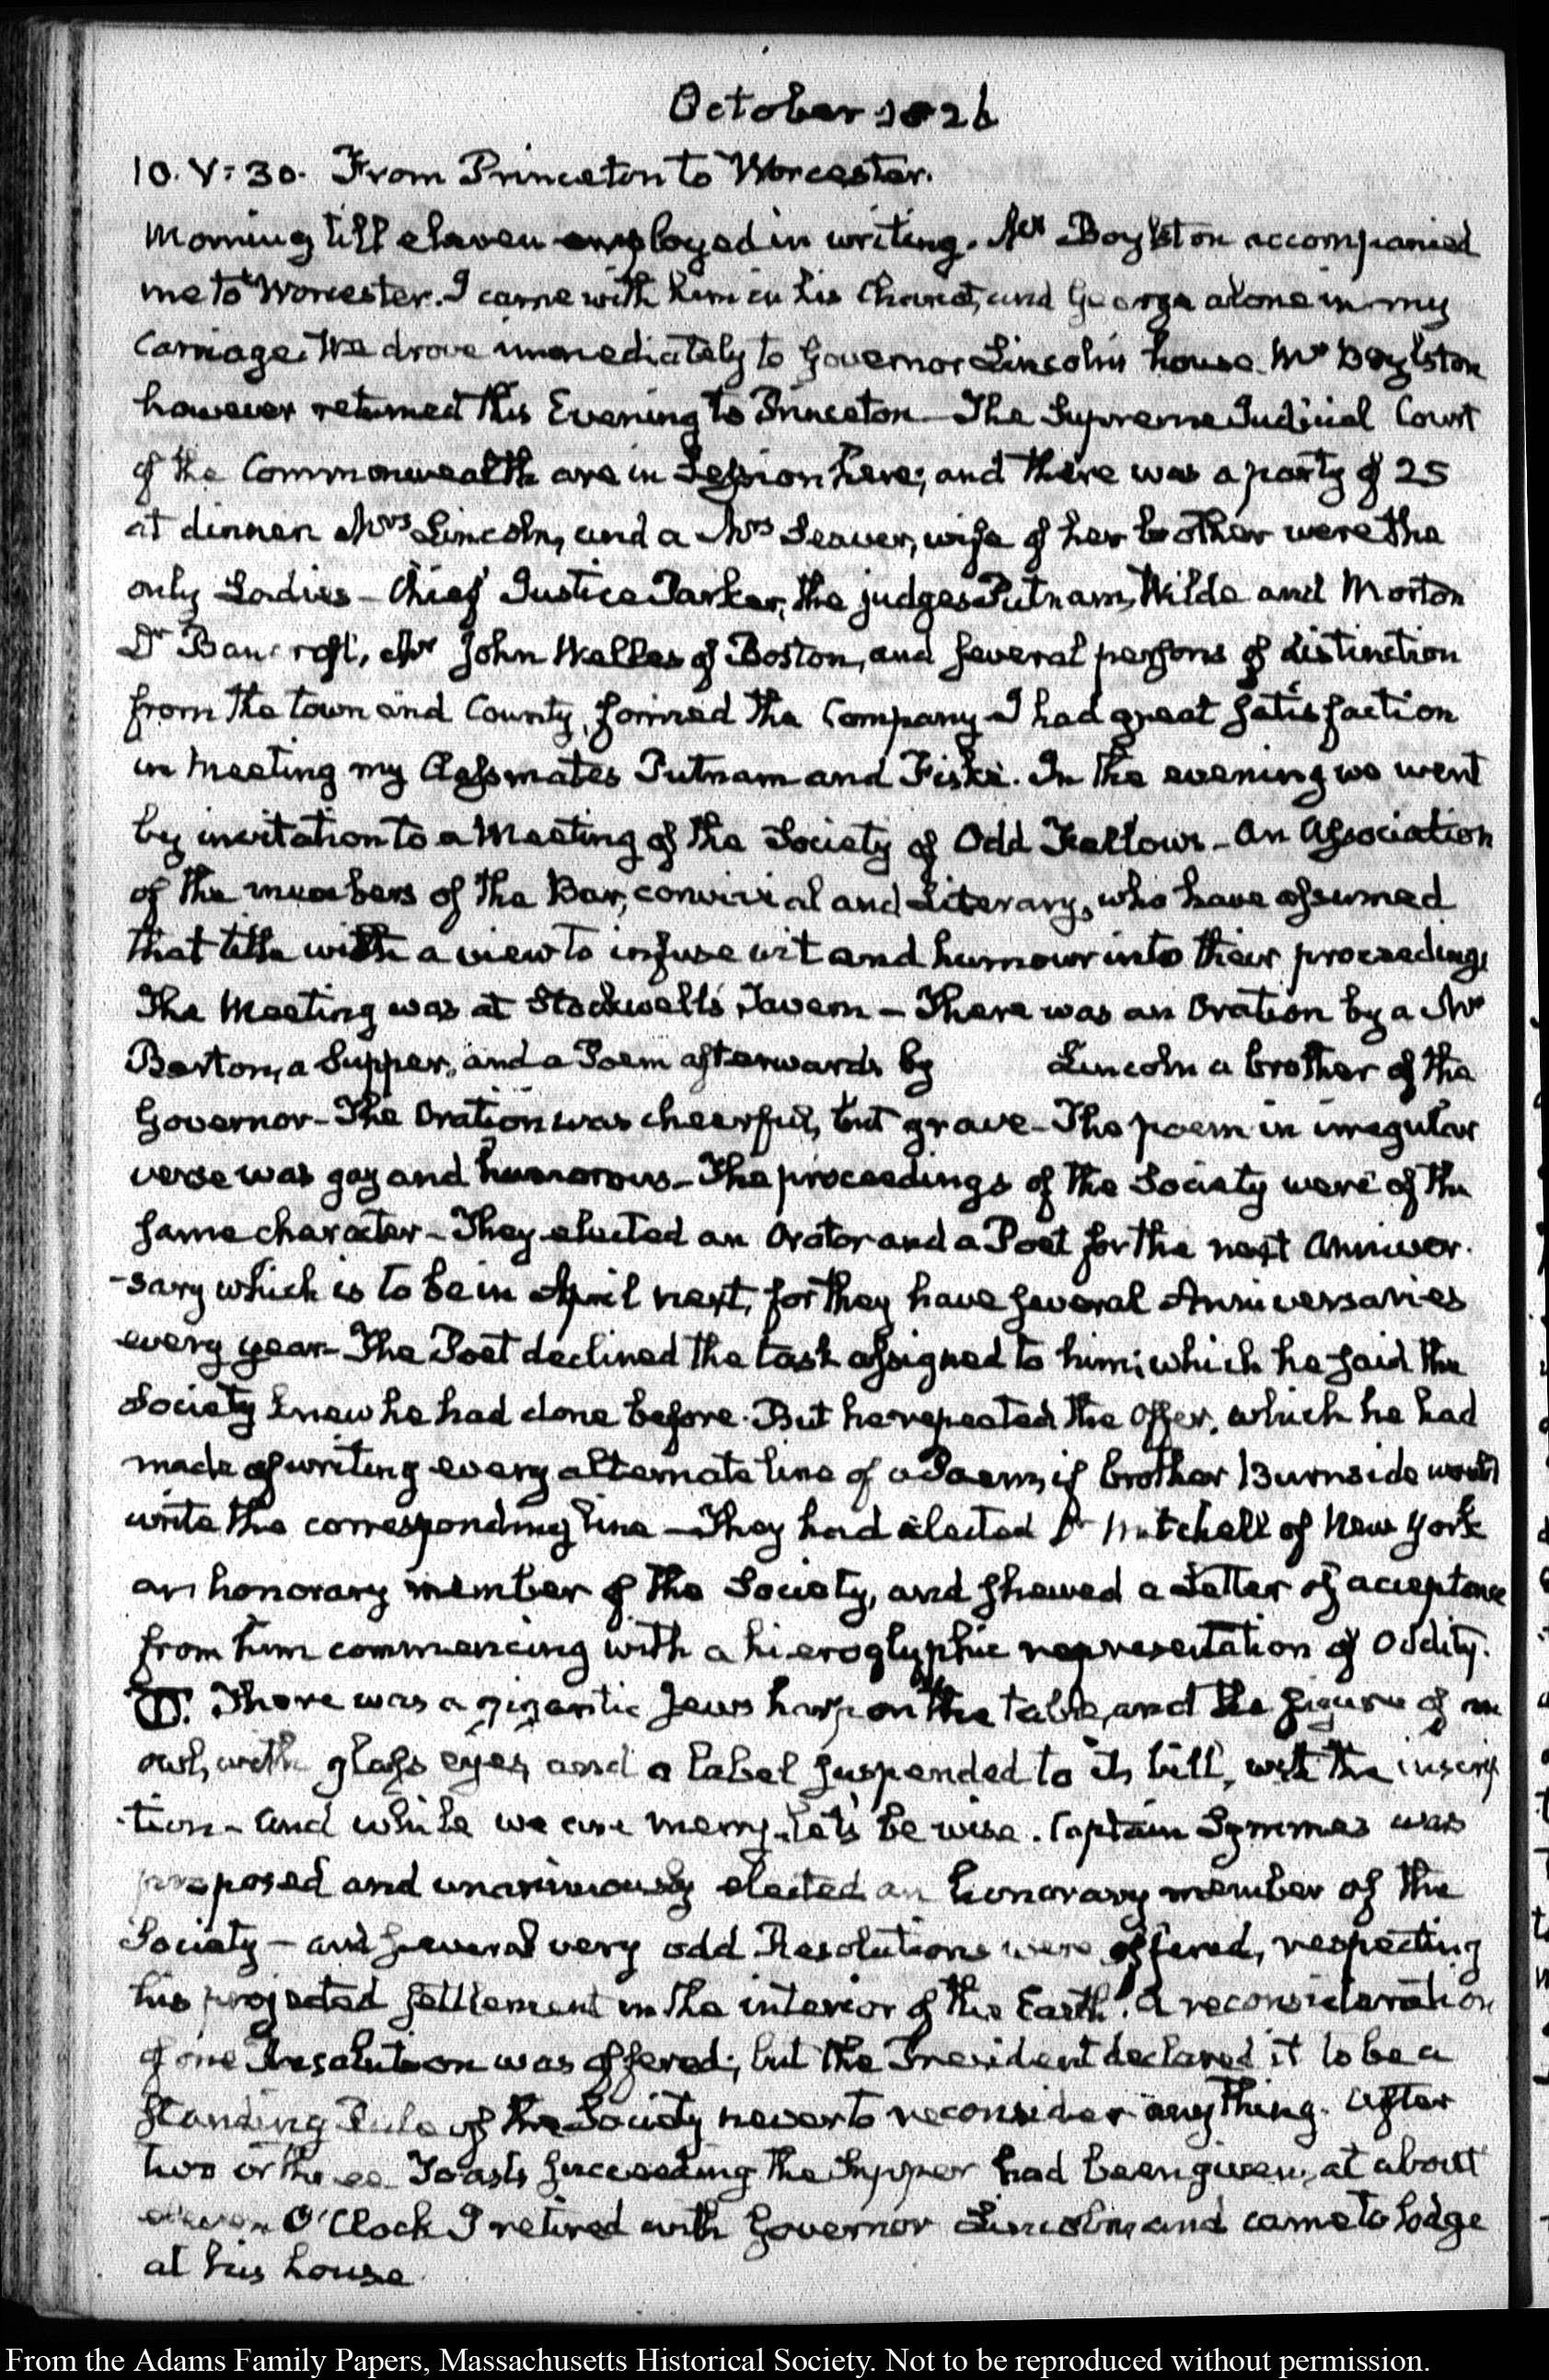 October 1826
10. V:30. From Princeton to Worcester.
Morning till eleven employed in writing. Mr Boylston accompanied
me to Worcester. I came with him in his Chariot, and George alone in my
Carriage. We drove immediately to Governor Lincoln's house. Mr Boylston
however returned this Evening to Princeton — The Supreme Judicial Court
of the Commonwealth are in Session here; and there was a party of 25
at dinner Mrs Lincoln, and a Mrs Seaver, wife of her brother were the
only Ladies — Chief Justice Parker, the judges Putnam, Wilde and Morton
Dr Bancroft, Mr John Welles of Boston, and several persons of distinction
from the town and County, formed the Company — I had great satisfaction
in meeting my Classmates Putnam and Fiske. In the evening we went
by invitation to a Meeting of the Society of Odd Fellows — An Association
of the members of the Bar, convivial and Literary, who have assumed
that title with a view to infuse wit and humour into their proceedings
The Meeting was at Stockwell's Tavern — There was an Oration by a Mr
Barton, a Supper, and a Poem afterwards by Lincoln a brother of the
Governor — The Oration was cheerful, but grave — The poem in irregular
verse was gay and humorous — The proceedings of the Society were of the
same character — They elected an Orator and a Poet for the next Anniver-
-sary which is to be in April next, for they have several Anniversaries
every year — The Poet declined the task assigned to him; which he said the
Society knew he had done before. But he repeated the offer, which he had
made of writing every alternate line of a Poem, if brother Burnside would
write the corresponding line — They had elected Dr Mitchell of New York
an honorary member of the Society, and shewed a Letter of acceptance
from him commencing with a hieroglyphic representation of Oddity.
There was a gigantic Jews harp on the table, and the figure of an
owl, with glass eyes, and a label suspended to its bill, with the inscrip
-tion — and while we are merry, let's be wise. Captain Symmes was
proposed and unanimously elected an honorary member of the
Society — and several very odd Resolutions were offered, respecting
his projected settlement in the interior of the Earth. A reconsideration
of one Resolution was offered; but the President declared it to be a
standing Rule of the Society never to reconsider any thing. After
two or three Toasts succeeding the Supper had been given, at about
eleven O'Clock I retired with Governor Lincoln, and came to lodge
at his house
From the Adams Family Papers, Massachusetts Historical Society. Not to be reproduced without permission.